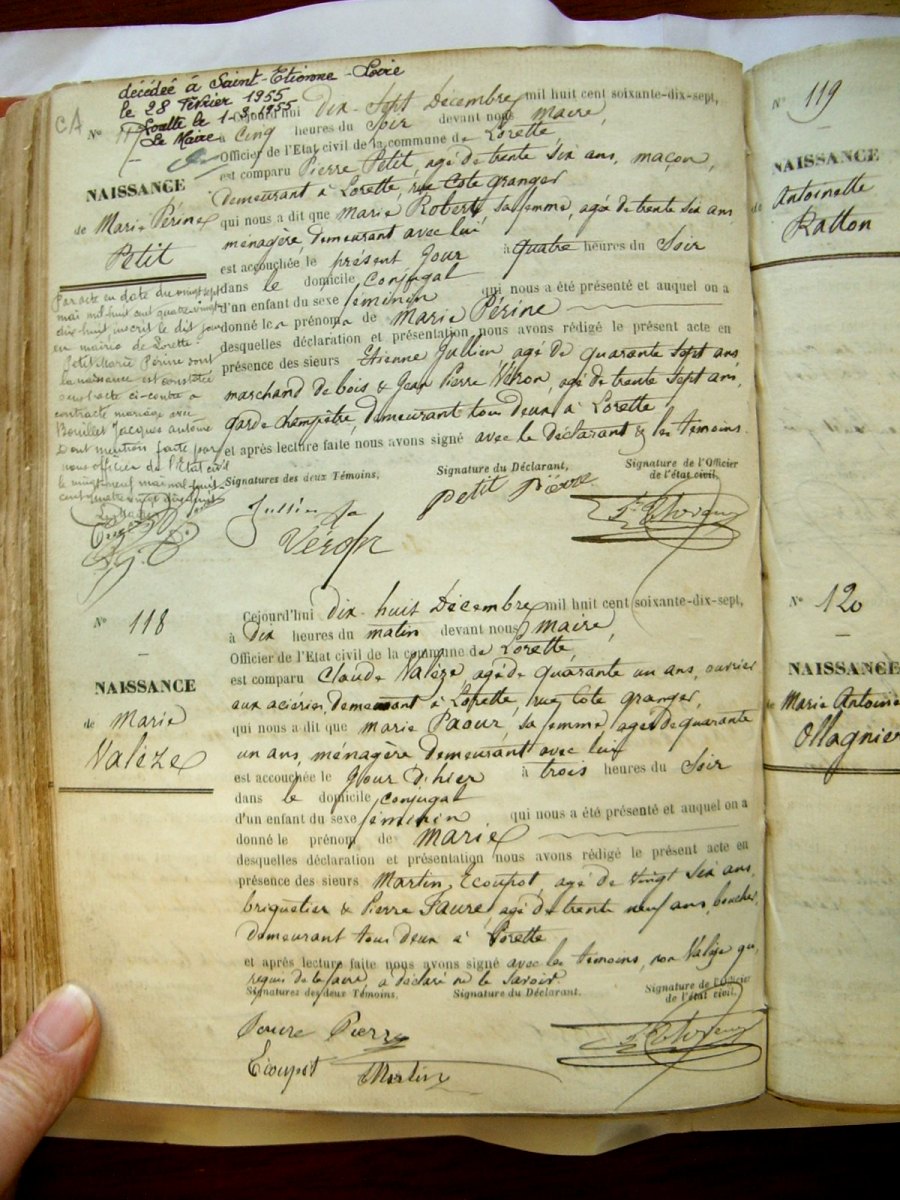 décédée à Saint-Etienne-Loire
le 28 Février 1955
Lorette le 1-3-1955
Le Maire
CA
N° 117
NAISSANCE
de Marie Périne
Petit
Par acte en date du vingt sept
mai mil huit cent quatre-vingt
dix-huit inscrit le dit jour
en mairie de Lorette
Petit Marie Périne dont
la naissance est constatée
en l'acte ci-contre a
contracté mariage avec
Bouillet Jacques antoine
Dont mention faite par
nous officier de l'Etat civil
le vingt neuf mai mil huit
cent quatre vingt dix huit
Le Maire
Cejourd'hui dix-Sept Décembre mil huit cent soixante-dix-sept,
à Cinq heures du Soir devant nous Maire,
Officier de l'Etat civil de la commune de Lorette
est comparu Pierre Petit, agé de trente Six ans, maçon,
demeurant à Lorette, rue Côte granger
qui nous a dit que Marie Robert, Sa femme, agée de trente Six ans
ménagère, demeurant avec lui
est accouchée le présent Jour à quatre heures du Soir
dans le domicile conjugal
d'un enfant du sexe féminin qui nous a été présenté et auquel on a
donné les prénoms de Marie Périne
desquelles déclaration et présentation nous avons rédigé le présent acte en
présence des sieurs Etienne Jullien agé de quarante Sept ans
marchand de bois & Jean Pierre Véron, agé de trente Sept ans,
garde champêtre, demeurant tous deux à Lorette
et après lecture faite nous avons signé avec le déclarant & les témoins.
Signatures des deux Témoins,
Signature du Déclarant,
Signature de l'Officier
de l'état civil.
Petit Pierre
Jullien
Véron
N° 118
NAISSANCE
de Marie
Valèze
Cejourd'hui dix-huit Décembre mil huit cent soixante-dix-sept,
à Dix heures du matin devant nous Maire,
Officier de l'Etat civil de la commune de Lorette,
est comparu Claude Valèze, agé de quarante un ans, ouvrier
aux aciéries, demeurant à Lorette, rue Côte granger,
qui nous a dit que Marie Paour, Sa femme agée de quarante
un ans, ménagère demeurant avec lui
est accouchée le Jour d'hier à trois heures du Soir
dans le domicile conjugal
d'un enfant du sexe féminin qui nous a été présenté et auquel on a
donné le prénom de Marie
desquelles déclaration et présentation nous avons rédigé le présent acte en
présence des sieurs Martin Ecoupot, agé de vingt Six ans,
briquetier & Pierre Faure, agé de trente neuf ans, boucher,
demeurant tous deux à Lorette
et après lecture faite nous avons signé avec les témoins, non Valèze qui,
requis de le faire, a déclaré ne le Savoir
Signatures des deux Témoins,
Signature du Déclarant.
Signature de l'Officier
de l'état civil.
Faure Pierre
Ecoupot Martin
N° 119
NAISSANCE
de Antoinette
Ratton
N° 120
NAISSANCE
de Marie Antoine
Ollagnier